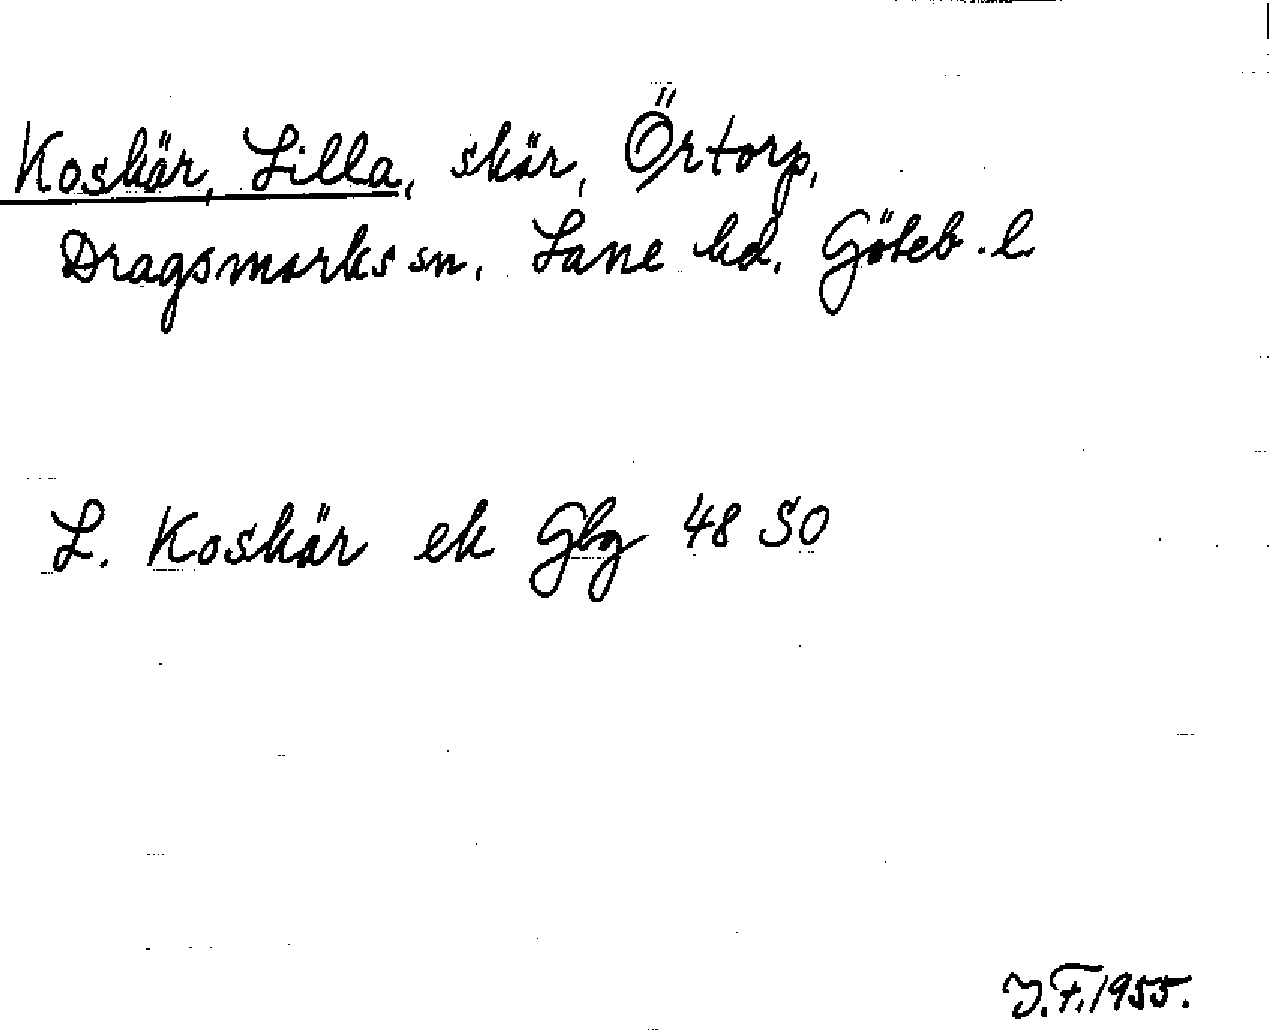 Koskär, Lilla, skär, Örtorp,
Dragsmarks sn. Lane hd. Göteb. l.
L. Koskär ek Gbg 48 SO
J.F. 1955.